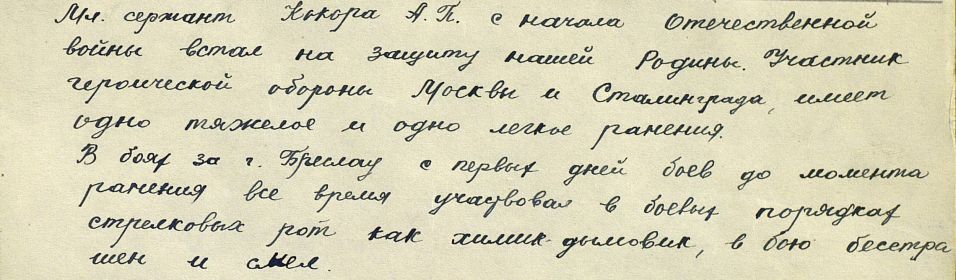 Мл. сержант Кокора А. П. с начала Отечественной
войны встал на защиту нашей Родины. Участник
героической обороны Москвы и Сталинграда, имеет
одно тяжелое и одно легкое ранения.
В боях за г. Бреслау с первых дней боев до момента
ранения все время участвовал в боевых порядках
стрелковых рот как химик-дымовик, в бою бесстра
шен и смел.